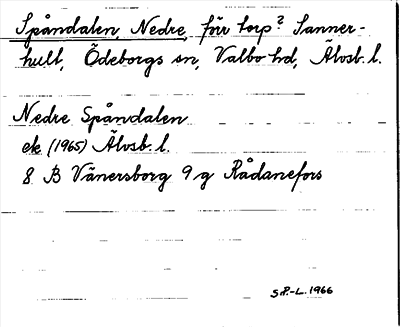 Spåndalen, Nedre, förr torp? Sanner-
hult, Ödeborgs sn, Valbo hd, Älvsb. l.
Nedre Spåndalen
ek (1965) Älvsb. l.
8 B Vänersborg 9 g Rådanefors
S P.-L. 1966